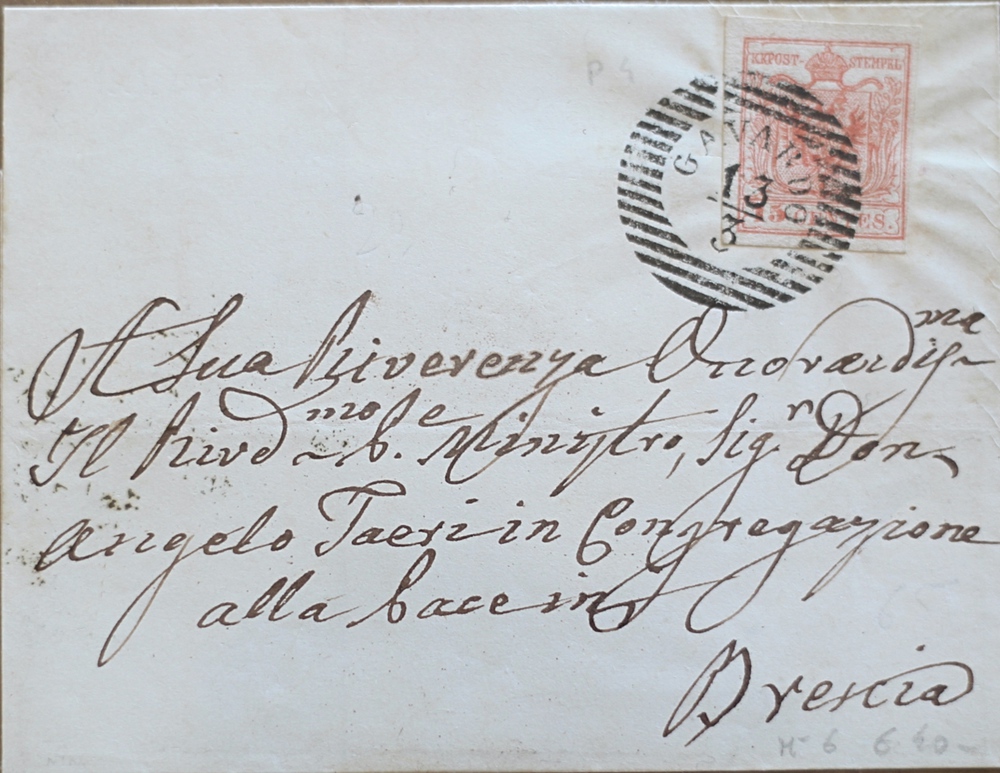 P 4
KKPOST-STEMPEL
GAVARDO
13
15 CENTES.
A Sua Riverenza Onorandis-ma
Il Rivd-mo Pe. Ministro, Sigr Don
Angelo Taeri in Congregazione
alla Pace in
Brescia
N 6 6.40-